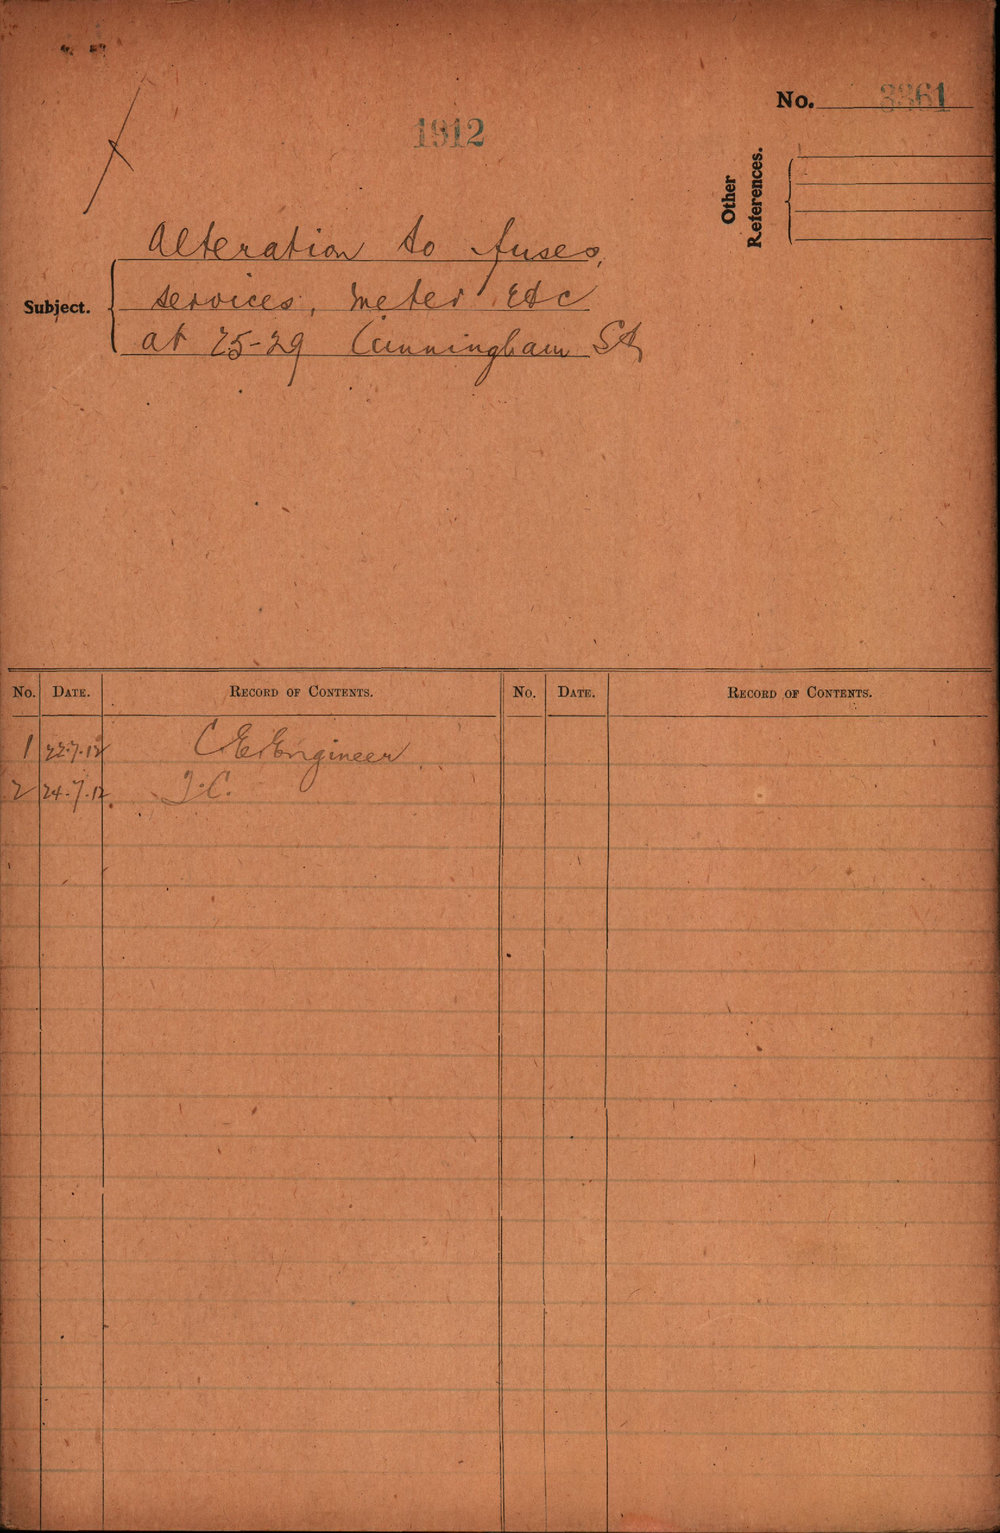 No. 3361
1912
Other
References.
Subject.
Alteration to fuses,
services, meter Etc
at 25-29 Cunningham St
No. DATE. RECORD OF CONTENTS. No. DATE. RECORD OF CONTENTS.
1 22.7.12 C.E.Engineer
2 24.7.12 T.C.